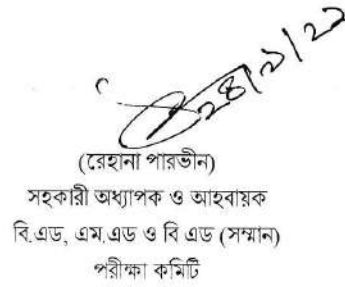 ২৪/১/২২
(রেহানা পারভীন)
সহকারী অধ্যাপক ও আহবায়ক
বি.এড, এম.এড ও বি এড (সম্মান)
পরীক্ষা কমিটি